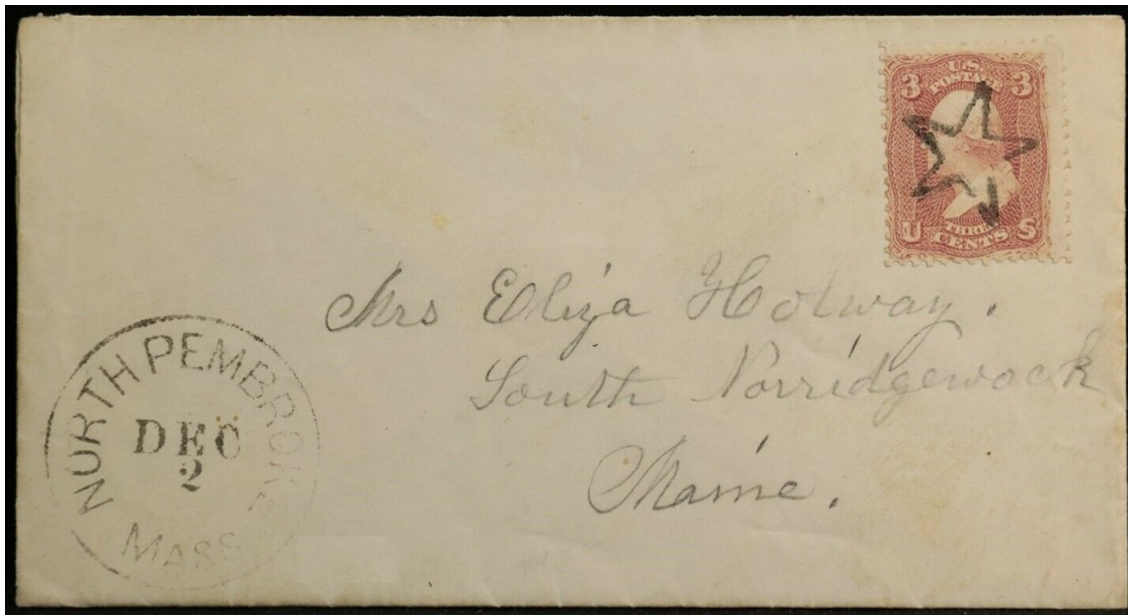 3 U.S. 3
POSTAGE
THREE
U CENTS S
Mrs Eliza Holway.
South Norridgewock
Maine.
NORTH PEMBROKE
DEC
2
MASS